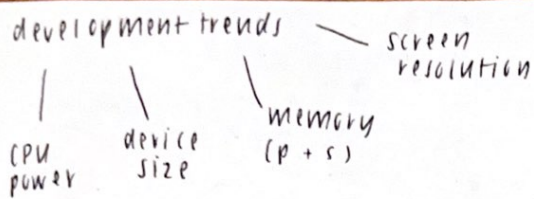 development trends
screen
resolution
CPU
power
device
size
memory
(p + s)